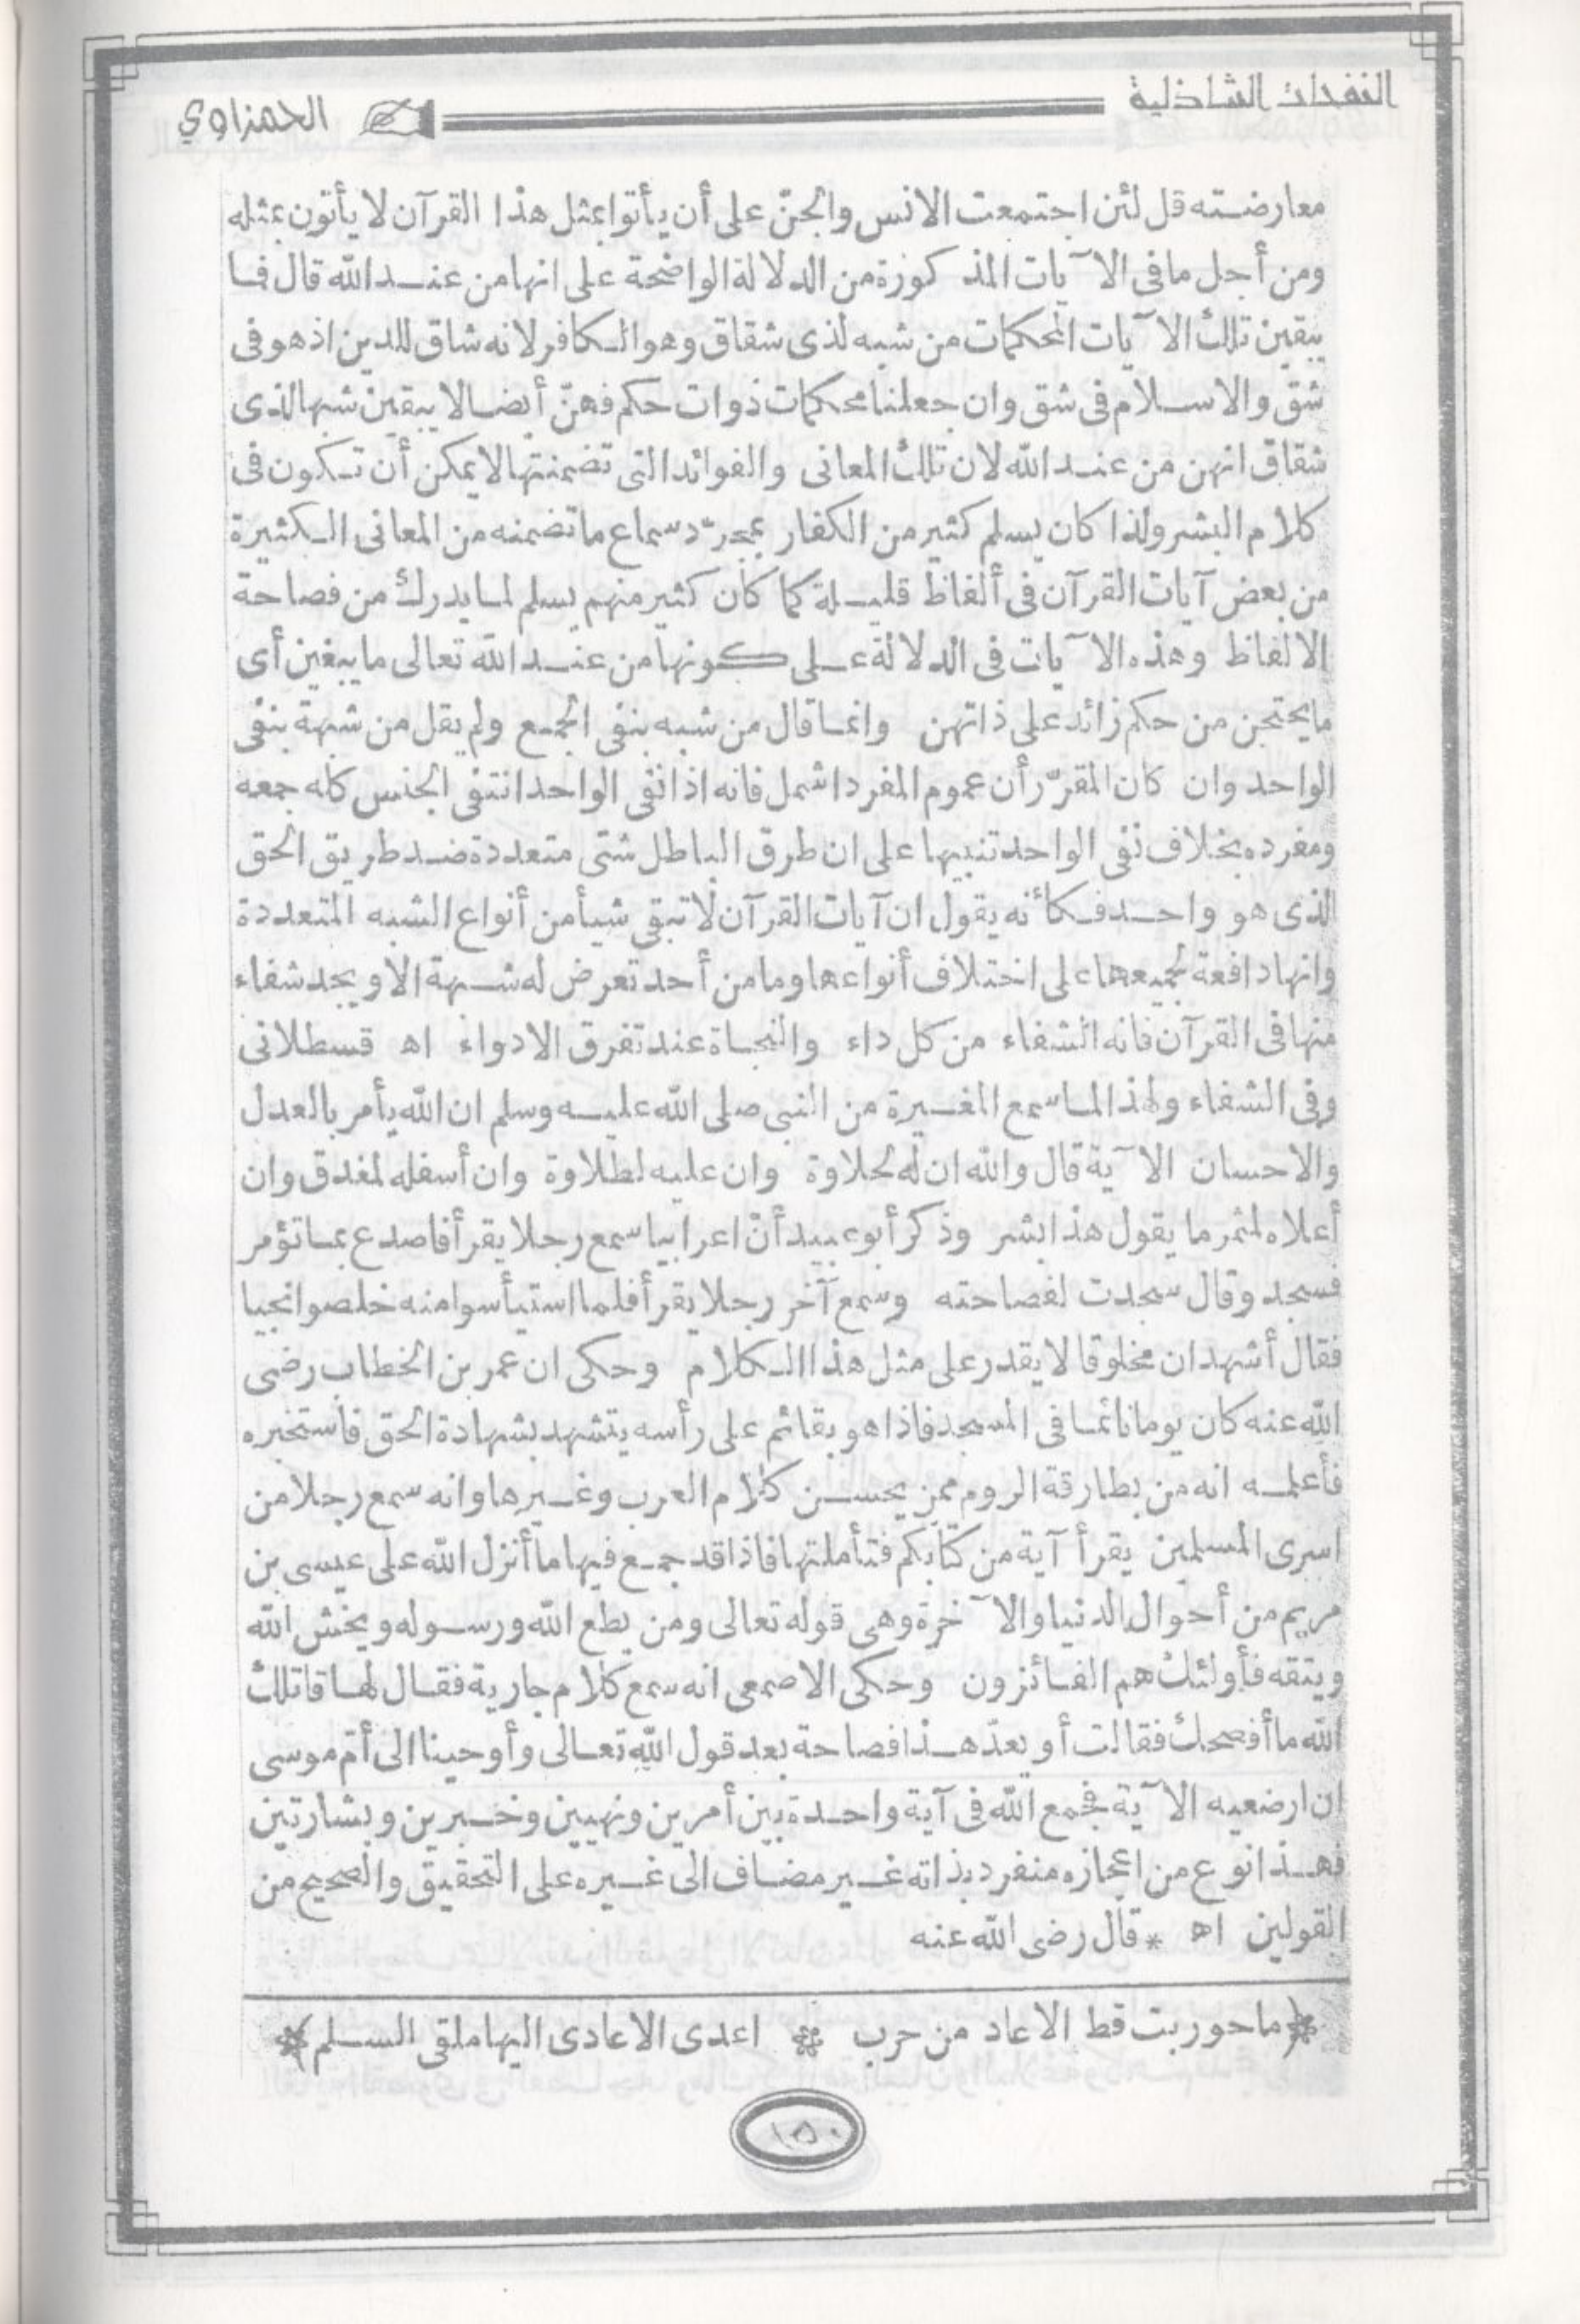 النفحات الشاذلية
الحمزاوي
معارضته قل لئن اجتمعت الانس والجنّ على أن يأتوا بمثل هذا القرآن لا يأتون بمثله
ومن أجل ما فى الآيات المذكورة من الدلالة الواضحة على انها من عند الله قال فما
يبقين تلك الآيات المحكمات من شبه لذى شقاق وهو الكافر لانه شاق للدين اذ هو فى
شق والاسلام فى شق وان جعلنا محكمات ذوات حكم فهنّ أيضا لا يبقين شبها لذى
شقاق انهن من عند الله لان تلك المعانى والفوائد التى تضمنتها لا يمكن أن تكون فى
كلام البشر ولذا كان يسلم كثير من الكفار بمجرّد سماع ما تضمنه من المعانى الكثيرة
من بعض آيات القرآن فى ألفاظ قليلة كما كان كثير منهم يسلم لما يدرك من فصاحة
الالفاظ وهذه الآيات فى الدلالة على كونها من عند الله تعالى ما يبغين أى
ما يحتجن من حكم زائد على ذاتهن وانما قال من شبه بنفى الجمع ولم يقل من شبهة بنفى
الواحد وان كان المقرّر أن عموم المفرد اشمل فانه اذا نفى الواحد انتفى الجنس كله جمعه
ومفرده بخلاف نفى الواحد تنبيها على ان طرق الباطل شتى متعددة ضد طريق الحق
الذى هو واحد فكأنه يقول ان آيات القرآن لا تبقى شيأ من أنواع الشبه المتعددة
وانها دافعة لجميعها على اختلاف أنواعها وما من أحد تعرض له شبهة الا ويجد شفاء
منها فى القرآن فانه الشفاء من كل داء والنجاة عند تفرق الادواء اه قسطلانى
وفى الشفاء ولهذا لما سمع المغيرة من النبى صلى الله عليه وسلم ان الله يأمر بالعدل
والاحسان الآية قال والله ان له لحلاوة وان عليه لطلاوة وان أسفله لمغدق وان
أعلاه لمثمر ما يقول هذا بشر وذكر أبو عبيد أنّ اعرابيا سمع رجلا يقرأ فاصدع بما تؤمر
فسجد وقال سجدت لفصاحته وسمع آخر رجلا يقرأ فلما استيأسوا منه خلصوا نجيا
فقال أشهد ان مخلوقا لا يقدر على مثل هذا الكلام وحكى ان عمر بن الخطاب رضى
الله عنه كان يوما نائما فى المسجد فاذا هو بقائم على رأسه يتشهد بشهادة الحق فاستخبره
فأعلمه انه من بطارقة الروم ممن يحسن كلام العرب وغيرها وانه سمع رجلا من
اسرى المسلمين يقرأ آية من كتابكم فتأملتها فاذا قد جمع فيها ما أنزل الله على عيسى بن
مريم من أحوال الدنيا والآخرة وهى قوله تعالى ومن يطع الله ورسوله ويخش الله
ويتقه فأولئك هم الفائزون وحكى الاصمعى انه سمع كلام جارية فقال لها قاتلك
الله ما أفصحك فقالت أو يعدّ هذا فصاحة بعد قول الله تعالى وأوحينا الى أمّ موسى
ان ارضعيه الآية فجمع الله فى آية واحدة بين أمرين ونهيين وخبرين وبشارتين
فهذا نوع من اعجازه منفرد بذاته غير مضاف الى غيره على التحقيق والصحيح من
القولين اه * قال رضى الله عنه
﴿ما حوربت قط الا عاد من حرب * اعدى الاعادى اليها ملقى السلم﴾
١٥٠